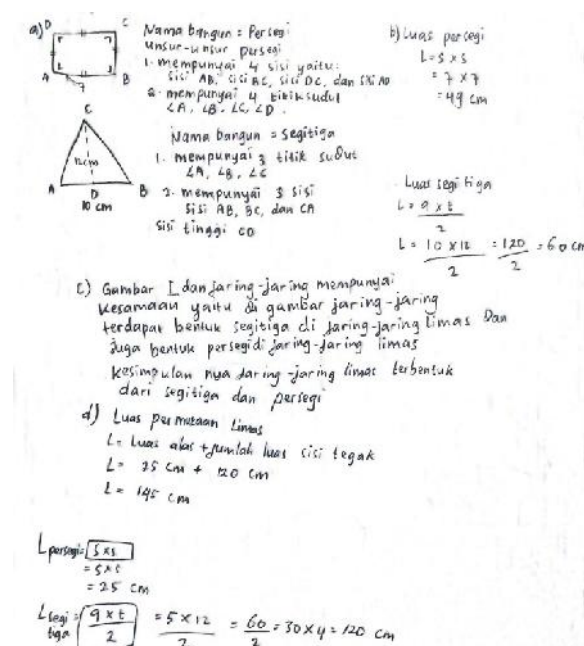 a) D C
A B
7
Nama bangun = Persegi
unsur-unsur persegi
1. mempunyai 4 sisi yaitu:
sisi AB, sisi BC, sisi DC, dan sisi AD
2. mempunyai 4 titik sudut
∠A, ∠B, ∠C, ∠D.
b) Luas persegi
L = s x s
= 7 x 7
= 49 cm
C
12cm
A D B
10 cm
Nama bangun = segitiga
1. mempunyai 3 titik sudut
∠A, ∠B, ∠C
2. mempunyai 3 sisi
sisi AB, BC, dan CA
sisi tinggi CD
Luas segitiga
L = a x t
2
L = 10 x 12 = 120 = 60 cm
2 2
c) Gambar I dan jaring-jaring mempunyai
kesamaan yaitu di gambar jaring-jaring
terdapat bentuk segitiga di jaring-jaring limas Dan
juga bentuk persegi di jaring-jaring limas
kesimpulan nya jaring-jaring limas terbentuk
dari segitiga dan persegi
d) Luas permukaan Limas
L = Luas alas + jumlah luas sisi tegak
L = 25 cm + 120 cm
L = 145 cm
L persegi = s x s
= 5 x 5
= 25 cm
L segi tiga = a x t = 5 x 12 = 60 = 30 x 4 = 120 cm
2 2 2